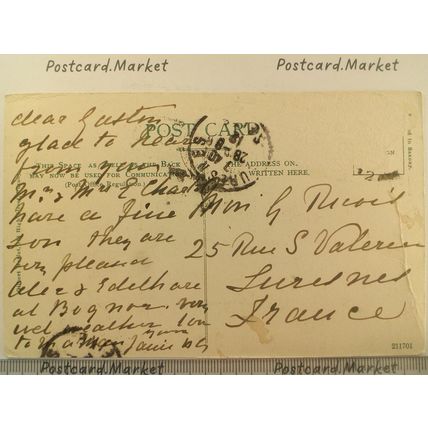 Postcard.Market
Postcard.Market
POST CARD.
THIS SPACE AS WELL AS THE BACK
MAY NOW BE USED FOR COMMUNICATION
(Post Office Regulation)
THE ADDRESS ON
WRITTEN HERE.
dear Gaston
glad to hear
from you
Mr & Mrs E
have a fine
son they are
very pleased
Alex & Edel are
at Bognor. very
wet weather love
to
Mon G
25 Rue S Valerien
Suresnes
France
211701
Postcard.Market
Postcard.Market